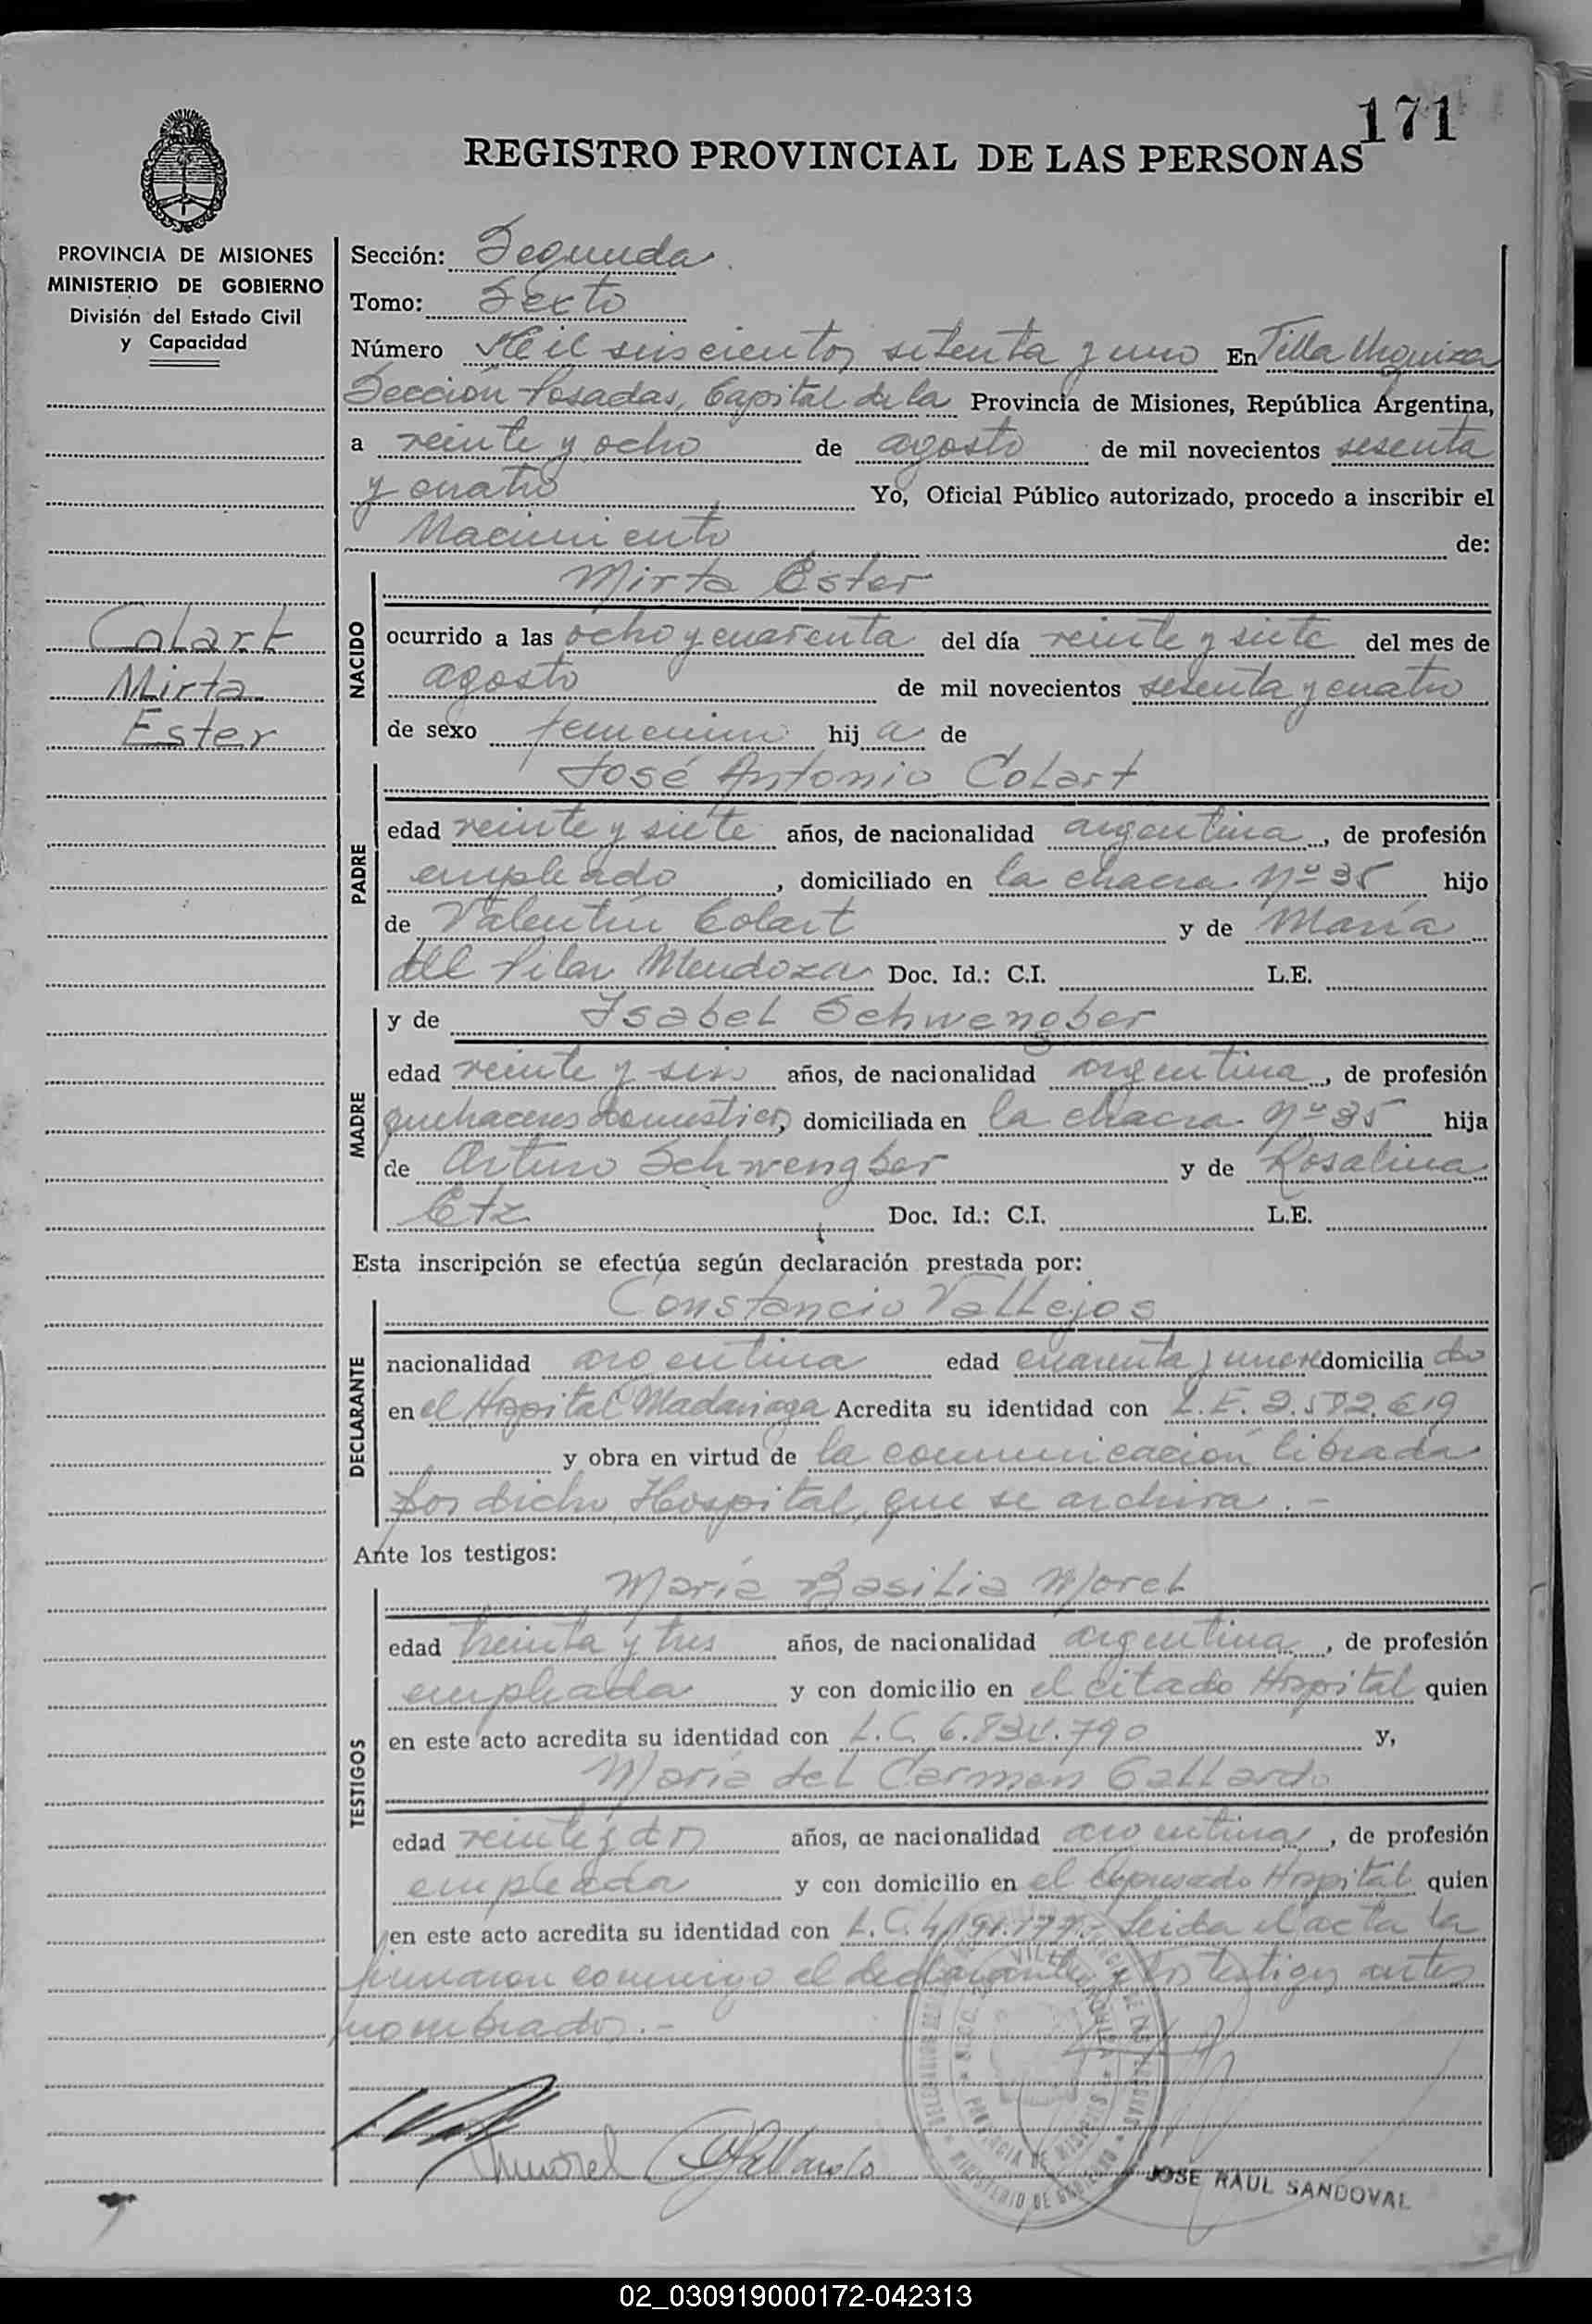 171
REGISTRO PROVINCIAL DE LAS PERSONAS
PROVINCIA DE MISIONES
MINISTERIO DE GOBIERNO
División del Estado Civil
y Capacidad
Colart
Mirta
Ester
Sección: Segunda
Tomo: Sexto
Número Mil seiscientos setenta y uno En Villa Urquiza
Sección Posadas, Capital de la Provincia de Misiones, República Argentina,
a veinte y ocho de agosto de mil novecientos sesenta
y cuatro Yo, Oficial Público autorizado, procedo a inscribir el
Nacimiento de:
NACIDO
Mirta Ester
ocurrido a las ocho y cuarenta del día veinte y siete del mes de
agosto de mil novecientos sesenta y cuatro
de sexo femenino hij a de
PADRE
José Antonio Colart
edad veinte y siete años, de nacionalidad argentina, de profesión
empleado, domiciliado en la chacra Nº 35 hijo
de Valentín Colart y de María
del Pilar Mendoza Doc. Id.: C.I. L.E.
MADRE
y de Isabel Schwengber
edad veinte y seis años, de nacionalidad argentina, de profesión
quehaceres domésticos, domiciliada en la chacra Nº 35 hija
de Arturo Schwengber y de Rosalina
Etz Doc. Id.: C.I. L.E.
Esta inscripción se efectúa según declaración prestada por:
DECLARANTE
Constancio Vallejos
nacionalidad argentina edad cuarenta y nueve domicilia do
en el Hospital Madariaga Acredita su identidad con L.E. 2.582.619
y obra en virtud de la comunicación librada
por dicho Hospital, que se archiva.-
Ante los testigos:
TESTIGOS
María Basilia Morel
edad treinta y tres años, de nacionalidad argentina, de profesión
empleada y con domicilio en el citado Hospital quien
en este acto acredita su identidad con L.C. 790 y,
María del Carmen Gallardo
edad veinte y dos años, de nacionalidad argentina, de profesión
empleada y con domicilio en el expresado Hospital quien
en este acto acredita su identidad con L.C. Leida el acta la
firmaron conmigo el declarante y los testigos antes
nombrados.-
Morel Gallardo
JOSE RAUL SANDOVAL
02_030919000172-042313